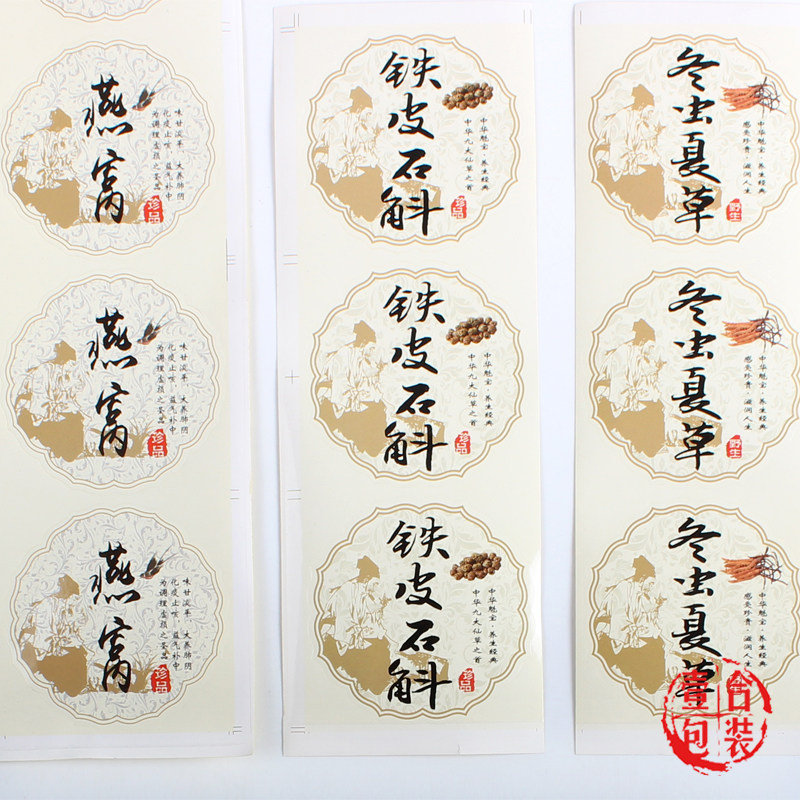 燕窝
味甘淡平，大养肺阴
化痰止咳 益气补中
为调理虚损之圣品
珍品
燕窝
味甘淡平，大养肺阴
化痰止咳 益气补中
为调理虚损之圣品
珍品
燕窝
味甘淡平，大养肺阴
化痰止咳 益气补中
为调理虚损之圣品
珍品
铁皮石斛
中华魁宝·养生经典
中华九大仙草之首
珍品
铁皮石斛
中华魁宝·养生经典
中华九大仙草之首
珍品
铁皮石斛
中华魁宝·养生经典
中华九大仙草之首
珍品
冬虫夏草
中华魁宝·养生经典
感受珍贵·滋润人生
野生
冬虫夏草
中华魁宝·养生经典
感受珍贵·滋润人生
野生
冬虫夏草
中华魁宝·养生经典
感受珍贵·滋润人生